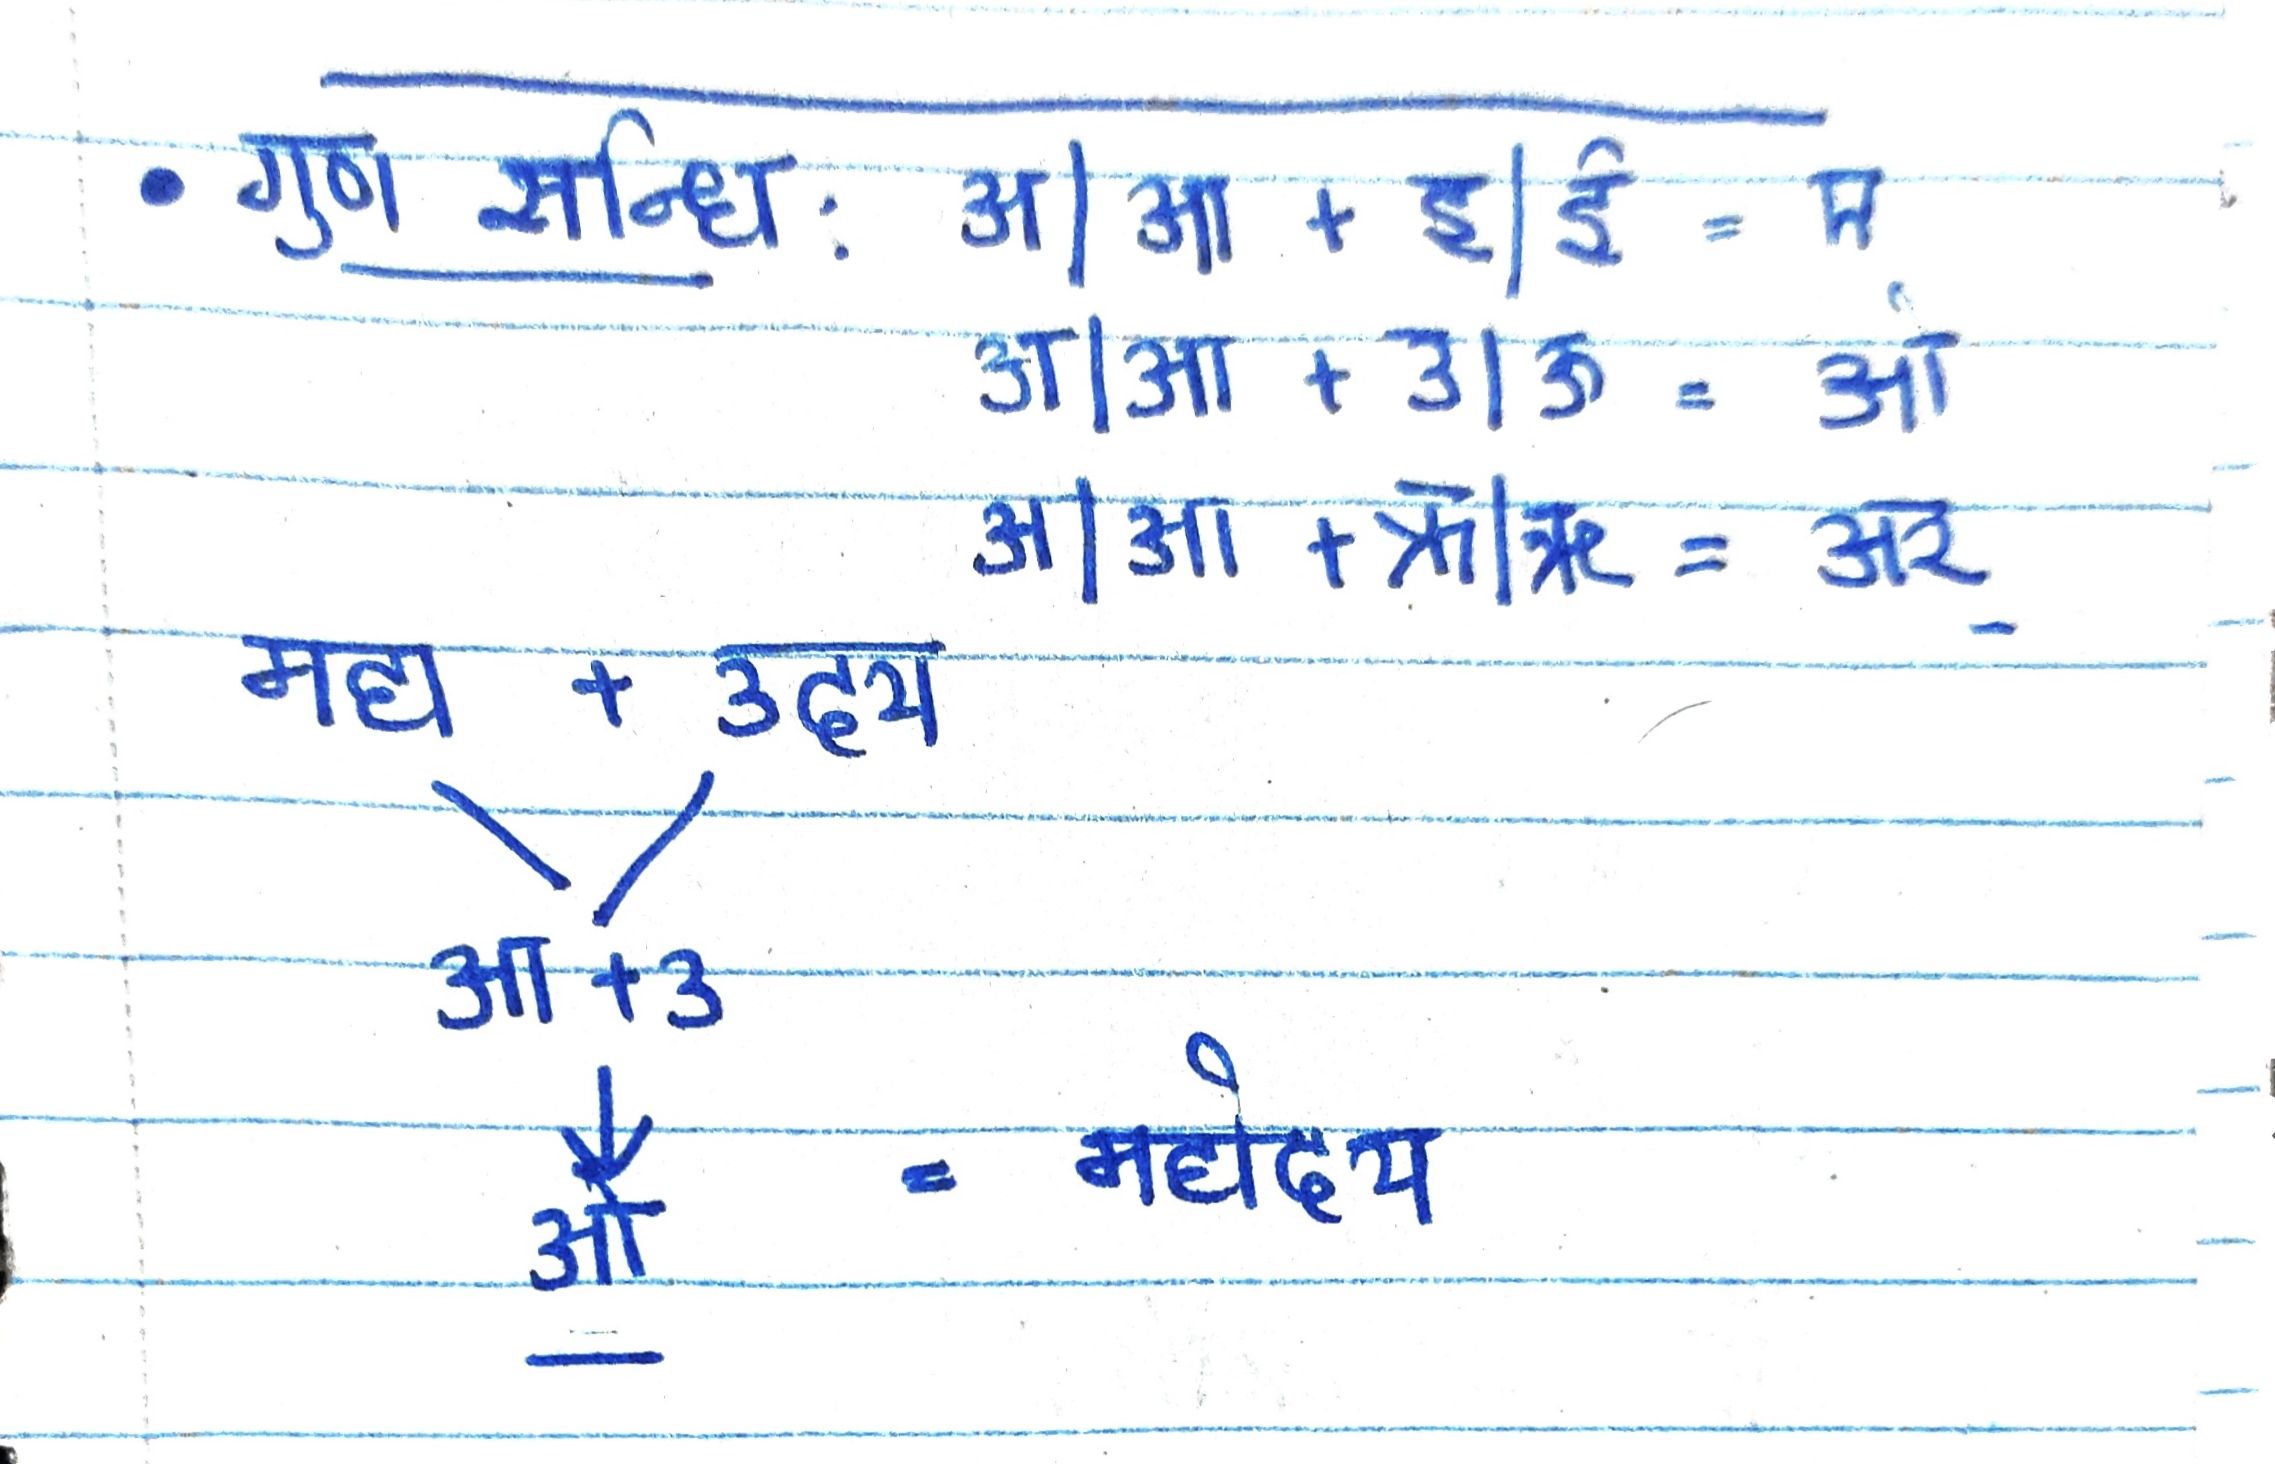 • गुण सन्धि : अ|आ + इ|ई = ए
अ|आ + उ|ऊ = ओ
अ|आ + ऋ|ॠ = अर्
महा + उदय
आ + उ
ओ = महोदय